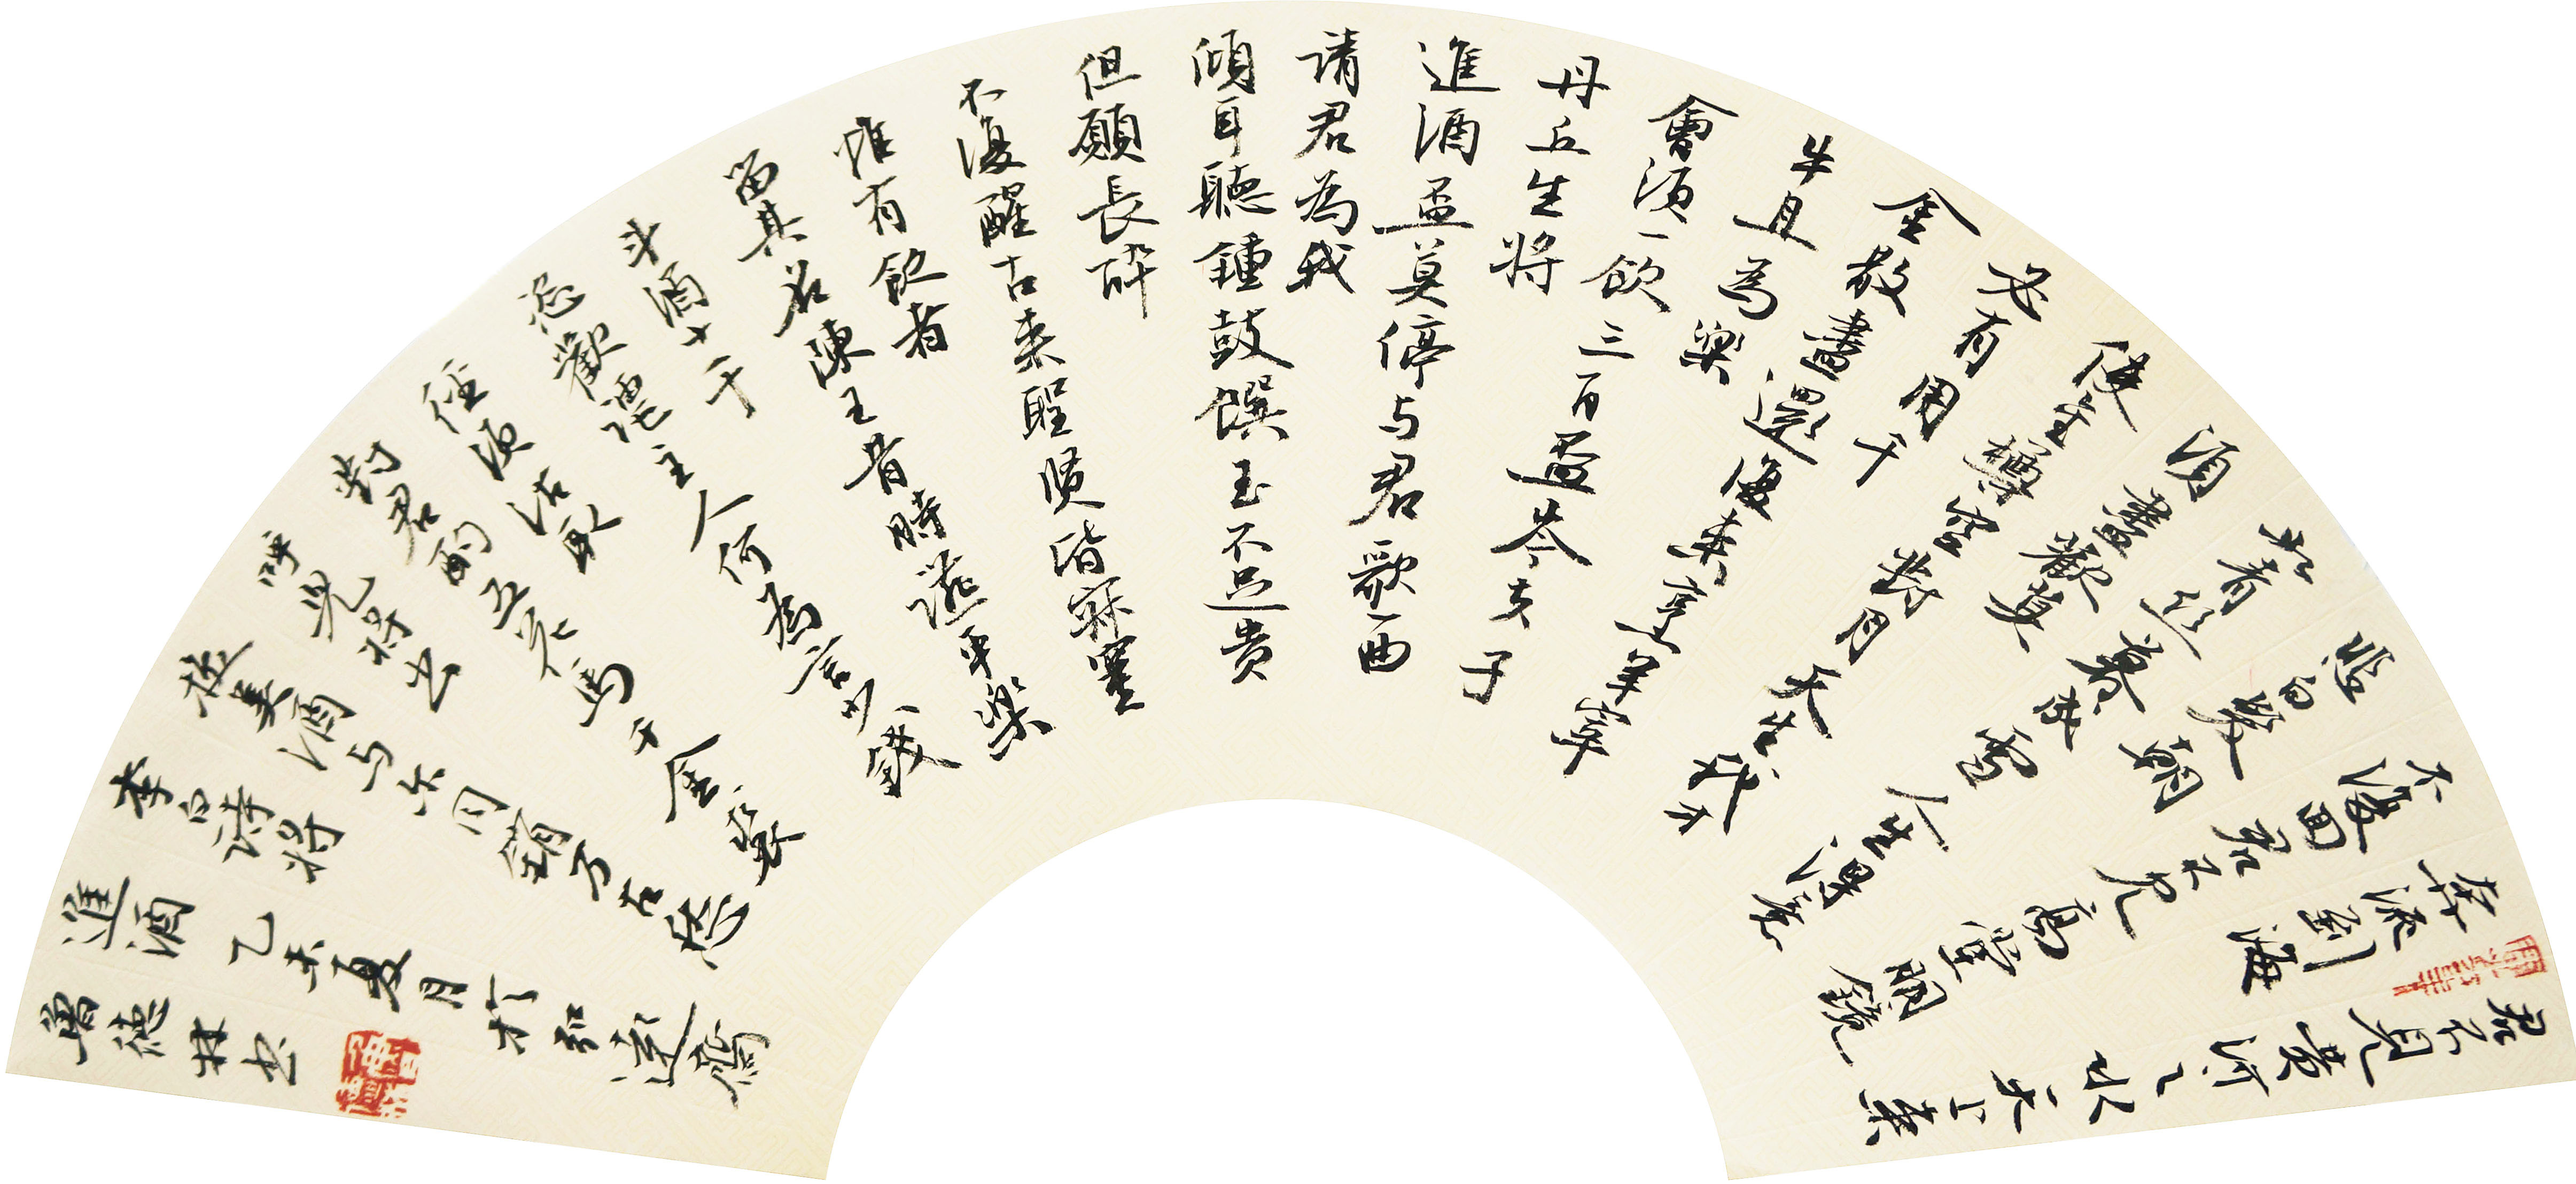 君不見黃河之水天上來
奔流到海
不復回君不見高堂明鏡
悲白髮朝
如青絲暮成雪人生得意
須盡歡莫
使金樽空對月天生我才
必有用千
金散盡還復來烹羊宰
牛且為樂
會須一飲三百盃岑夫子
丹丘生將
進酒盃莫停与君歌一曲
請君為我
傾耳聽鍾鼓饌玉不足貴
但願長醉
不復醒古來聖賢皆寂寞
惟有飲者
留其名陳王昔時讌平樂
斗酒十千
恣歡謔主人何為言少錢
徑須沽取
對君酌五花馬千金裘
呼兒將出
換美酒与尔同銷万古愁
李白詩將
進酒 乙未夏月於達齋
德林書